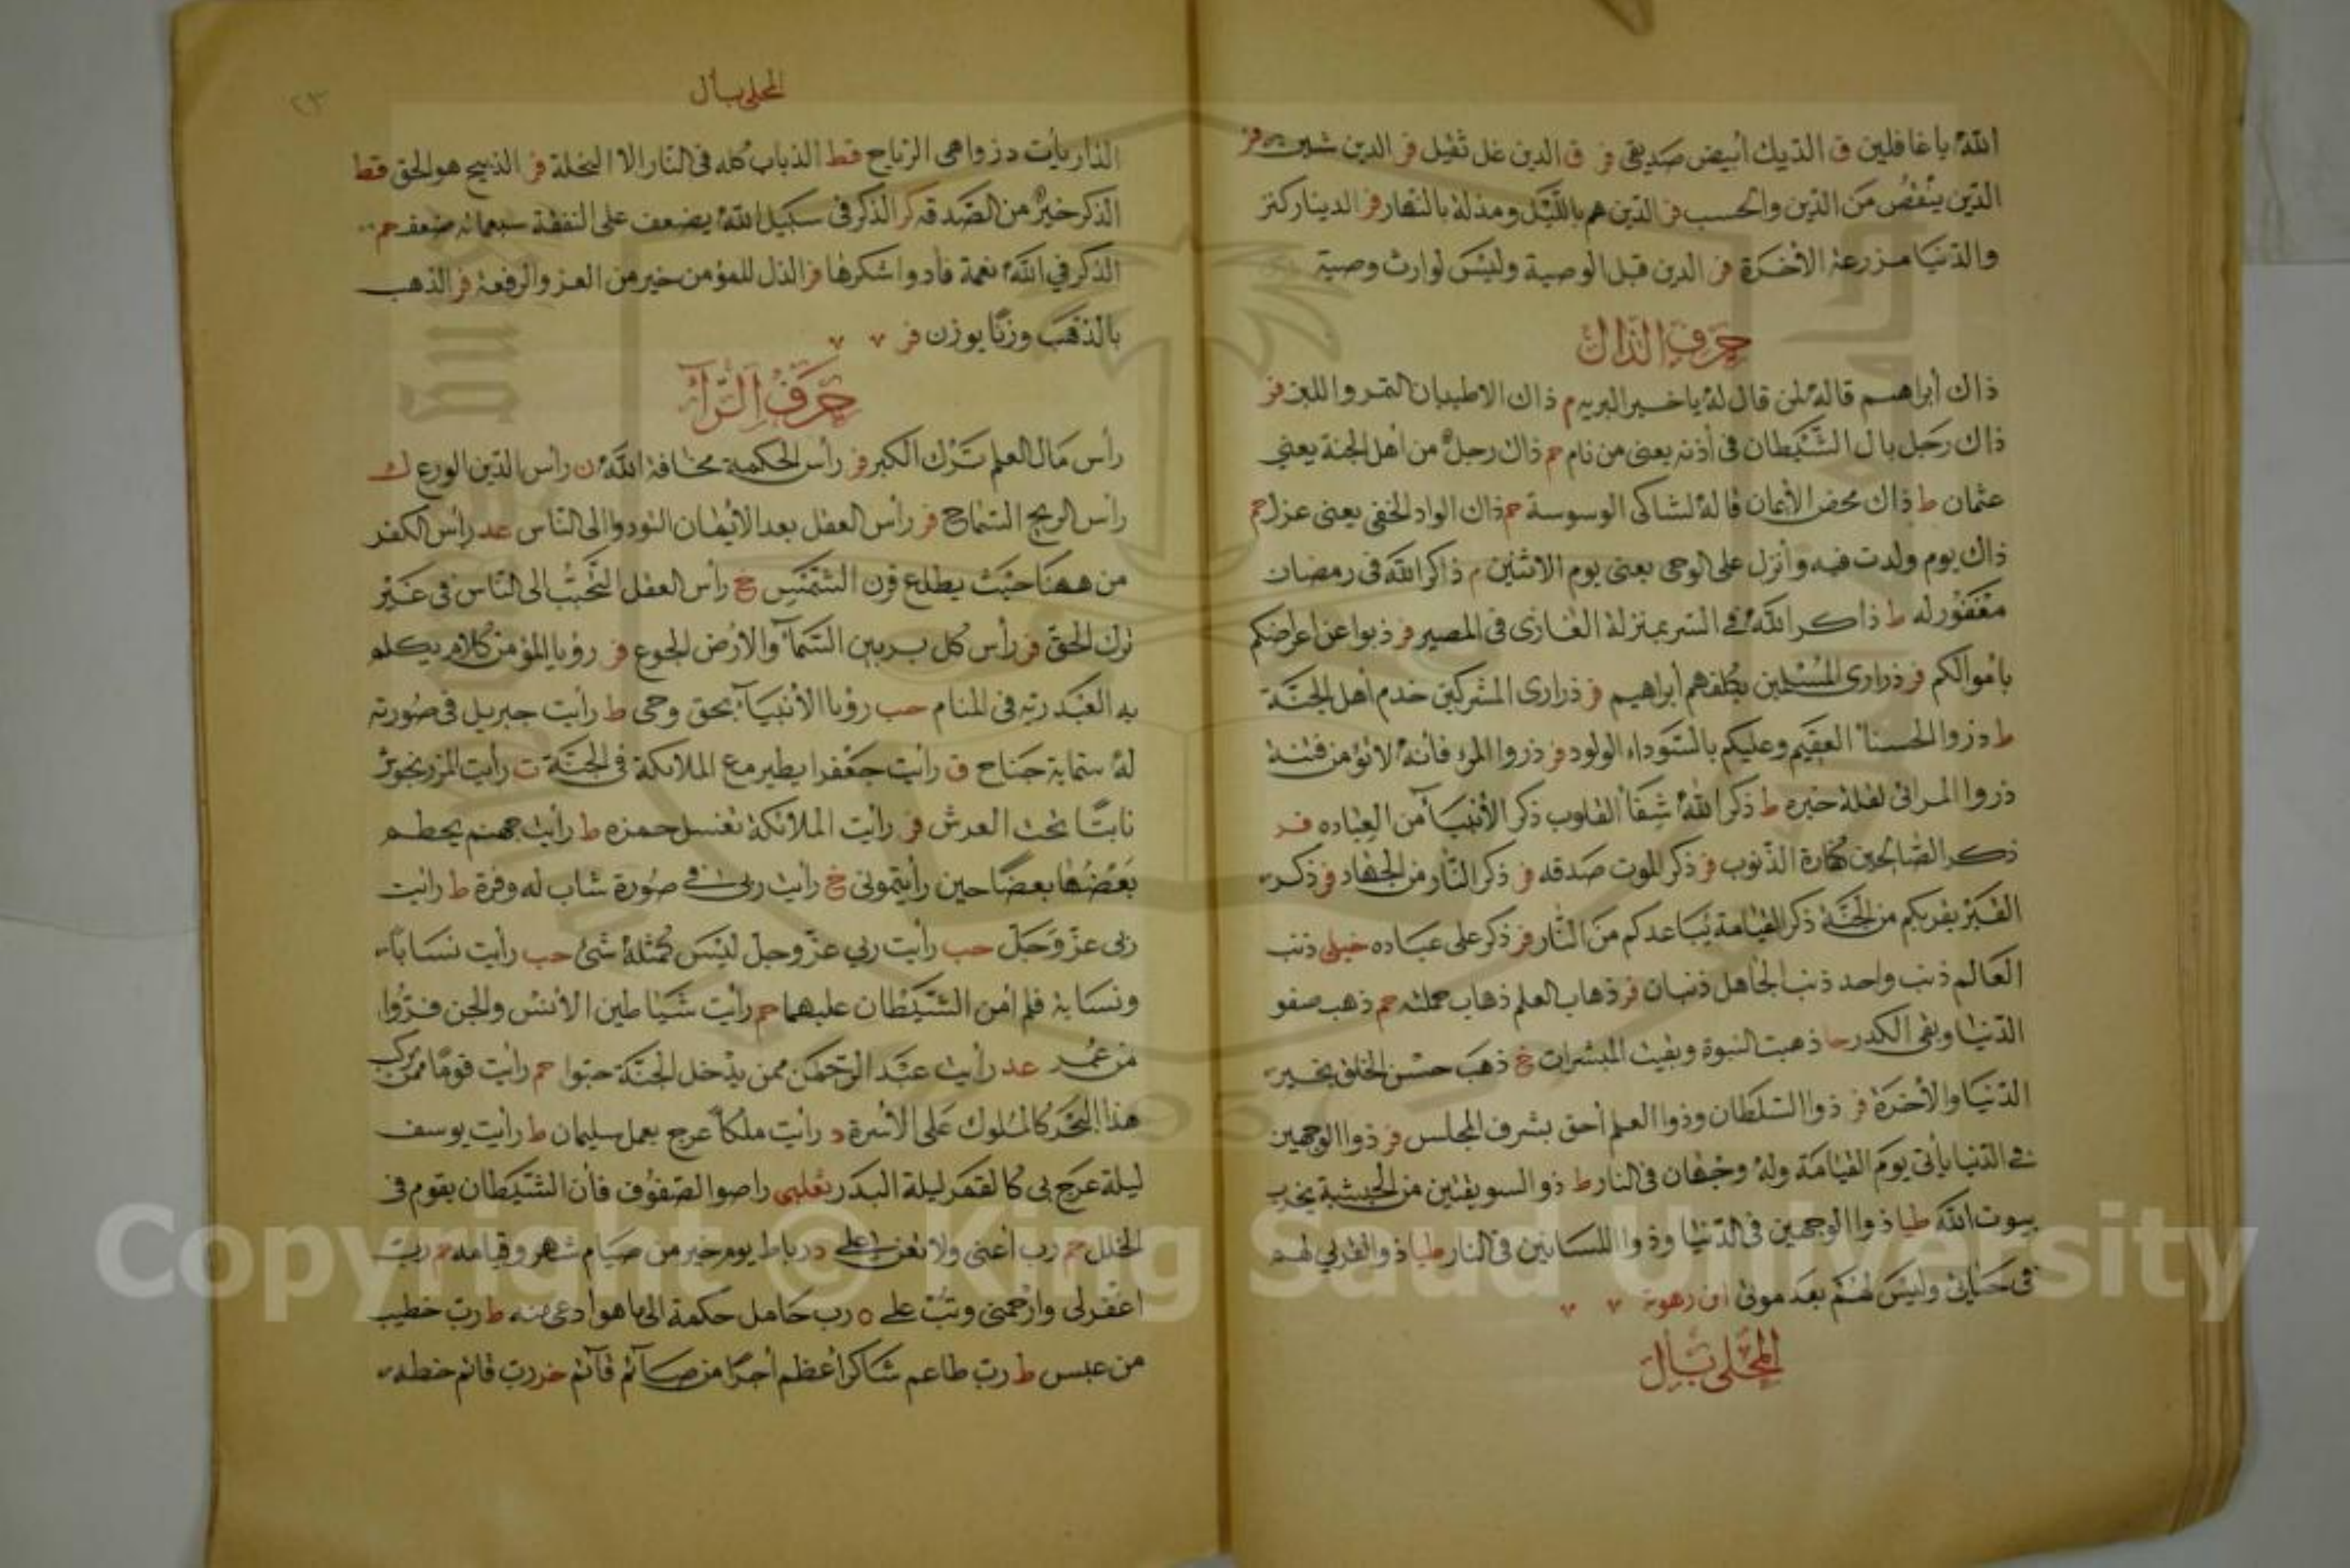 الله يا غافلين ق الديك أبيض صديقي فر ق الدين غل ثقيل فر الدين شين فر
الدين ينقص من الدين والحسب فر الدين هم بالليل ومذلة بالنهار فر الدينار كنز
والدنيا مزرعة الأخرة فر الدين قبل الوصية وليس لوارث وصية
حرف الذال
ذاك أبراهيم قاله لمن قال له يا خير البريه م ذاك الاطيبان التمر واللبن فر
ذاك رجل بال الشيطان في أذنه يعني من نام حم ذاك رجل من أهل الجنة يعني
عثمان ط ذاك محض الأيمان قاله لشاكي الوسوسة حم ذاك الواد الخفي يعني عزل حم
ذاك يوم ولدت فيه وأنزل على الوحي يعني يوم الاثنين م ذاكر الله في رمضان
مغفور له ط ذاكر الله في السر بمنزلة الغازى في المصير فر ذبوا عن اعراضكم
بأموالكم فر ذرارى المسلمين يكلفهم أبراهيم فر ذرارى المشركين خدم أهل الجنة
ط دزوا الحسنا العقيم وعليكم بالسوداء الولود فر ذروا المرء فأنه لا تؤمن فتنة
ذروا المرائى لقلة خيره ط ذكر الله شفأ القلوب ذكر الأنبيأ من العباده فر
ذكر الصالحين كفارة الذنوب فر ذكر الموت صدقه فر ذكر النار من الجهاد فر ذكر
القبر يقربكم من الجنة ذكر القيامة يباعدكم من النار فر ذكر على عباده خيلى ذنب
العالم ذنب واحد ذنب الجاهل ذنبان فر ذهاب العلم ذهاب حملته حم ذهب صفو
الدنيا وبقى الكدر حا ذهبت النبوة وبقيت المبشرات خ ذهب حسن الخلق بخير
الدنيا والأخرة فر ذوا السلطان وذوا العلم أحق بشرف المجلس فر ذوا الوجهين
في الدنيا يأتى يوم القيامة وله وجهان في النار ط ذو السويقتين من الحبشة يخرب
بيوت الله طيا ذوا الوجهين في الدنيا وذوا اللسانين في النار طيا ذو القربي لهم
في حياتي وليس لهم بعد موتى
المحلى بأل
٢٣
المحلى بأل
الذاريات دزوا هي الرياح قط الذباب كله في النار الا النحلة فر الذبيح هو الحق قط
الذكر خير من الصدقه كر الذكر في سبيل الله يضعف على النفقة سبعمائه ضعف حم
الذكر في الله نعمة فأدوا شكرها فر الذل للمؤمن خير من العز والرفعة فر الذهب
بالذهب وزنا يوزن فر
حرف الرآ
رأس مال العلم ترك الكبر فر رأس الحكمة مخافة الله ن رأس الدين الورع ك
رأس الربح السماح فر رأس العقل بعد الأيمان التودوا الى الناس عد رأس الكفر
من ههنا حيث يطلع قرن الشمس خ رأس العقل التحبب الى الناس في غير
ترك الحق فر رأس كل بر بين السمآ والأرض الجوع فر رؤيا المؤمن كلام يكلم
به العبد ربه في المنام حب رؤيا الأنبيآ بحق وحى ط رأيت جبريل في صورته
له ستماية جناح ق رأيت جعفرا يطير مع الملائكة في الجنة ت رأيت المزرنجوش
نابتا تحت العرش فر رأيت الملائكة تغسل حمزه ط رأيت جهنم يحطم
بعضها بعضا حين رأيتموني خ رأيت ربي في صورة شاب له وفرة ط رأيت
ربى عز وجل حب رأيت ربي عز وجل ليس كمثله شئ حب رأيت نسابا
ونسابة فلم امن الشيطان عليهما حم رأيت شياطين الأنس والجن فروا
من عمر عد رأيت عبد الرحمن ممن يدخل الجنة حبوا حم رأيت قوما ممن يركب
هذا البحر كالملوك على الأسرة د رأيت ملكا عرج بعمل سليمان ط رأيت يوسف
ليلة عرج بى كالقمر ليلة البدر ثعلبى راصوا الصفوف فأن الشيطان يقوم فى
الخلل حم رب أعنى ولا تعن على د رباط يوم خير من صيام شهر وقيامه حم رب
اغفرلى وارحمنى وتب على ه رب حامل حكمة الى ما هو ادعى منه ط رب خطيب
من عبس ط رب طاعم شاكر أعظم أجرا من صآئم قآئم رب قائم حظه